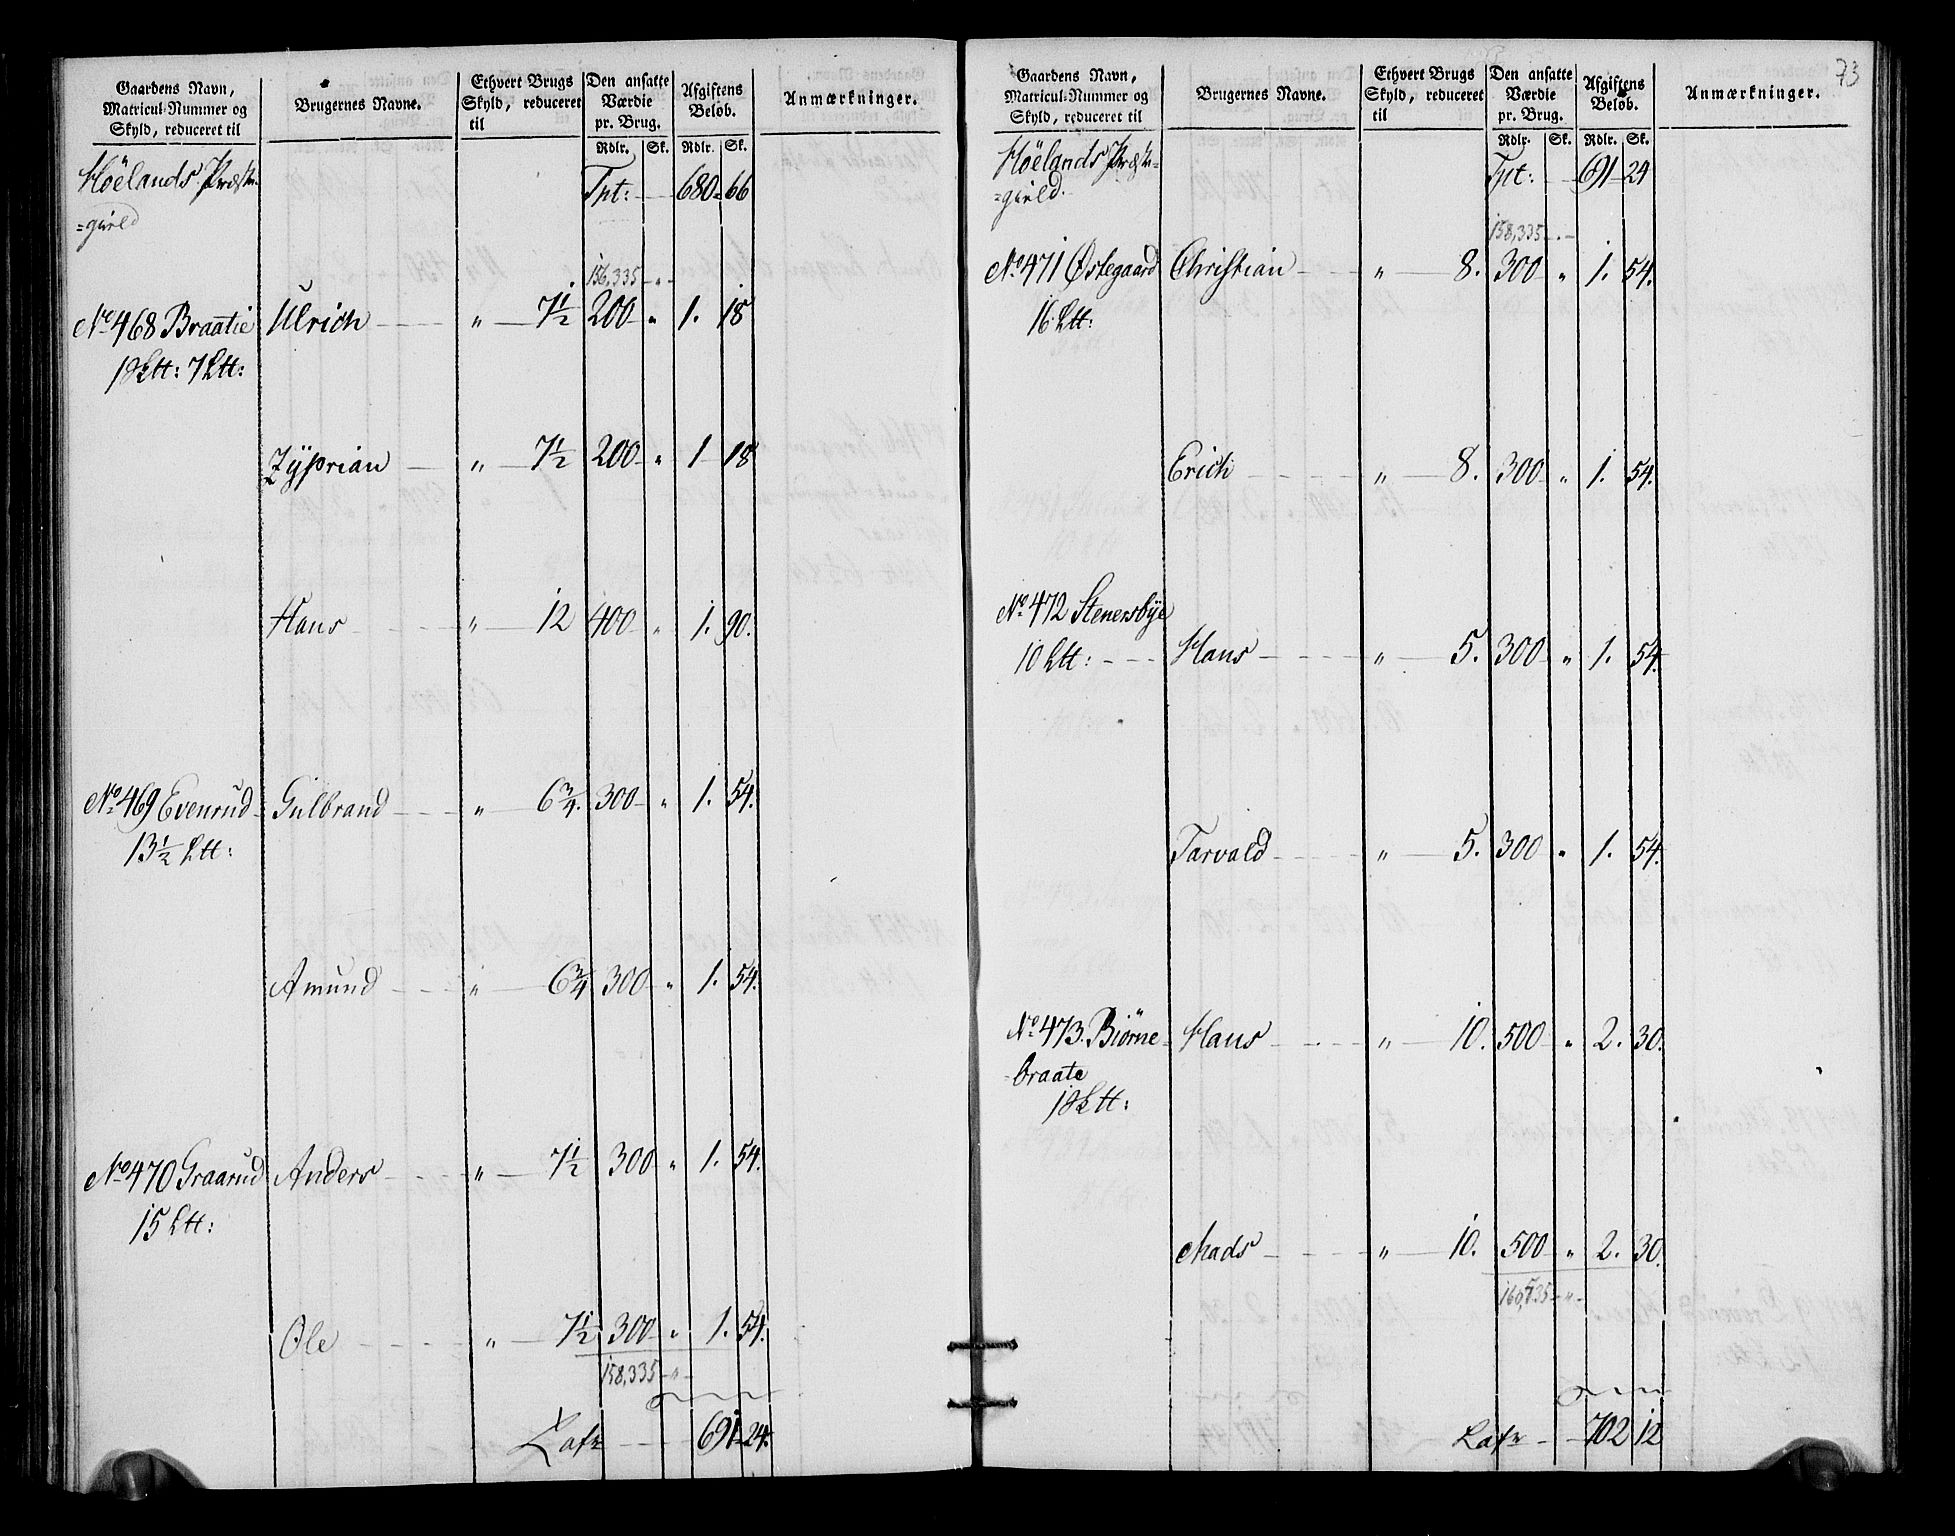 Gaardens Navn, Matricul-Nummer og Skyld, reduceret til | Brugernes Navne. | Ethvert Brugs Skyld, reduceret til | Den ansatte Værdie pr. Brug. | Afgiftens Beløb. | Anmærkninger.
Rdlr. Sk. Rdlr. Sk.
Höelands Præste- Tpt: — 680 - 66
=gield
156,335 - " -
No 468 Braatie Ulrich — " — 7½ 200 " 1. 18
1 Ltt: 7 Ltt:
Zyprian — " — 7½ 200 " 1 - 18
Hans — " — 12 400 " 1. 90.
No 469 Evenrud Gulbrand — " — 6¾. 300 " 1. 54.
13½ Ltt:
Amund — " — 6¾ 300 " 1. 54.
No 470 Graarud Anders — " — 7½ 300 " 1. 54.
15 Ltt:
Ole — " — 7½ 300 " 1. 54.
158,335 - " -
Lats — 691 - 24.
73
Gaardens Navn, Matricul-Nummer og Skyld, reduceret til | Brugernes Navne. | Ethvert Brugs Skyld, reduceret til | Den ansatte Værdie pr. Brug. | Afgiftens Beløb. | Anmærkninger.
Rdlr. Sk. Rdlr. Sk.
Höelands Præste- Tpt: — 691 - 24
=gield.
158,335 - " -
No 471 Østegaard Christian — " — 8. 300 " 1. 54.
16 Ltt:
Erich — " — 8. 300 " 1. 54.
No 472 Stenersbye
10 Ltt: — Hans — " — 5. 300 " 1. 54.
Tarvald — " — 5. 300 " 1. 54.
No 473. Biørne- Hans — " — 10. 500 " 2. 30.
=braate
1 Ltt:
Mads — " — 10. 500 " 2. 30.
160,535 - " -
Lats — 702 12